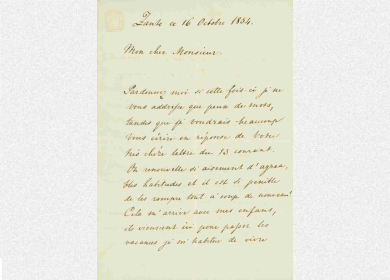 Zante ce 16 Octobre 1854.
Mon cher Monsieur.
Pardonnez moi si cette fois ci je ne
vous addresse que peu de mots,
tandis que je voudrais beaucoup
vous écrire en réponse de votre
très chère lettre du 13 courant.
On renouvelle si aisement d'agréa
bles habitudes et il est si penible
de les rompre tout à coup de nouveau!
Cela m'arrive avec mes enfans,
ils viennent ici pour passer les
vacances je m'habitue de vivre